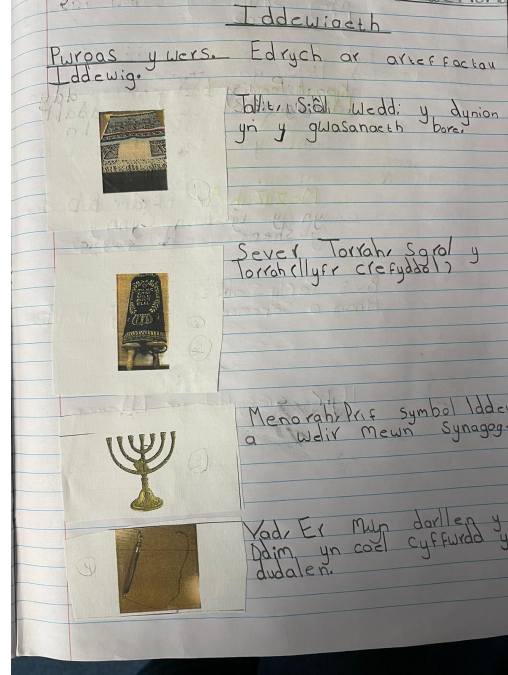 Iddewiaeth
Pwrpas y wers. Edrych ar arteffactau
Iddewig.
Tallit, Siôl weddi y dynion
yn y gwasanaeth bore.
1
Sever Torrah, Sgrol y
Torrah (llyfr crefyddol)
2
Menorah, Prif symbol Idde
a welir mewn Synagog.
3
Yad, Er mwyn darllen y
Ddim yn cael cyffwrdd y
dudalen.
4